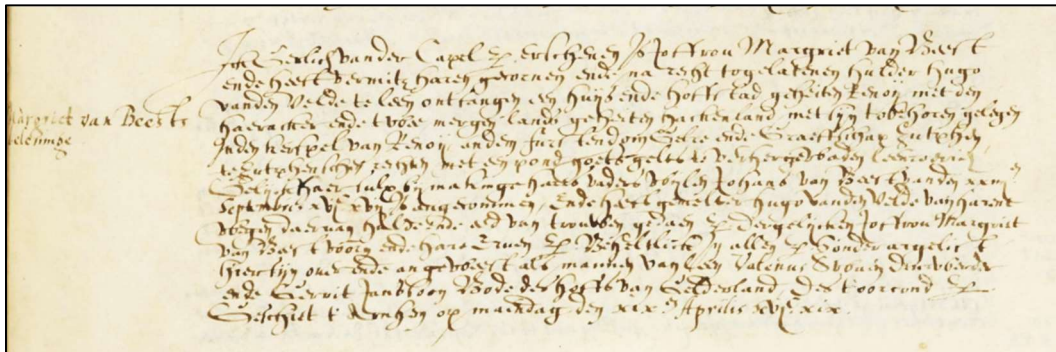 Margriet van Beests
beleninge
Ick Gerlich vander Capel &c. Erschenen is Joffrou Margriet van Beest
ende heeft vermits haren gecornen ende na recht togelatenen hulder Hugo
vanden Velde te leen ontfangen een huijs ende hoffstad geheiten Renoij met den
haeracker ende twee mergen lands geheiten Hackenland met sijn tobehoren gelegen
inden kerspel van Renoij, anden furstendom Gelre ende Graeffschap Zutphen,
te Zutphenschen rechten met een pond goets gelts te verhergewaden leenroerich
Gelijck haer sulx bij makinge haers vaders wijlen Johans van Beest vanden xxiii en
Septembris xvjc xvij is angecommen, Ende heeft gemelter Hugo vanden Velde van harent
wegen daervan hulde ende eed van trouwen gedaen &c. Dergelijcken Joffrou Margriet
van Beest voorn ende hare Erven &c. Beheltlick in allen &c. Sonder argelist
Hier sijn over ende an geweest als mannen van leen Valerius
ende Gerrit Janssoon Bode des Hoffs van Gelderland. Des t oorcond &c.
Geschiet t Arnhem op maendag den xix en Aprilis xvjc xix.